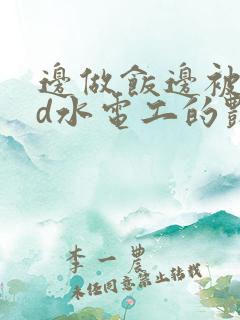 邊做飯邊被
d水電工的
李一農
未经同意禁止转载